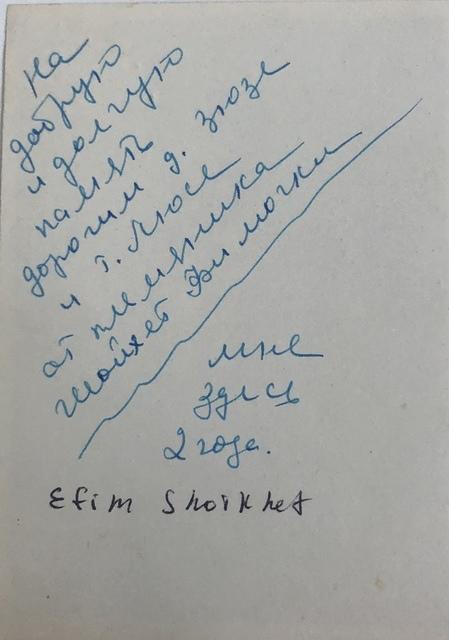 На
добрую
и долгую
память
дорогим д. Зюзе
и т. Люсе
от племянника
Шойхет Фимочки
мне
здесь
2 года.
Efim Shoikhet